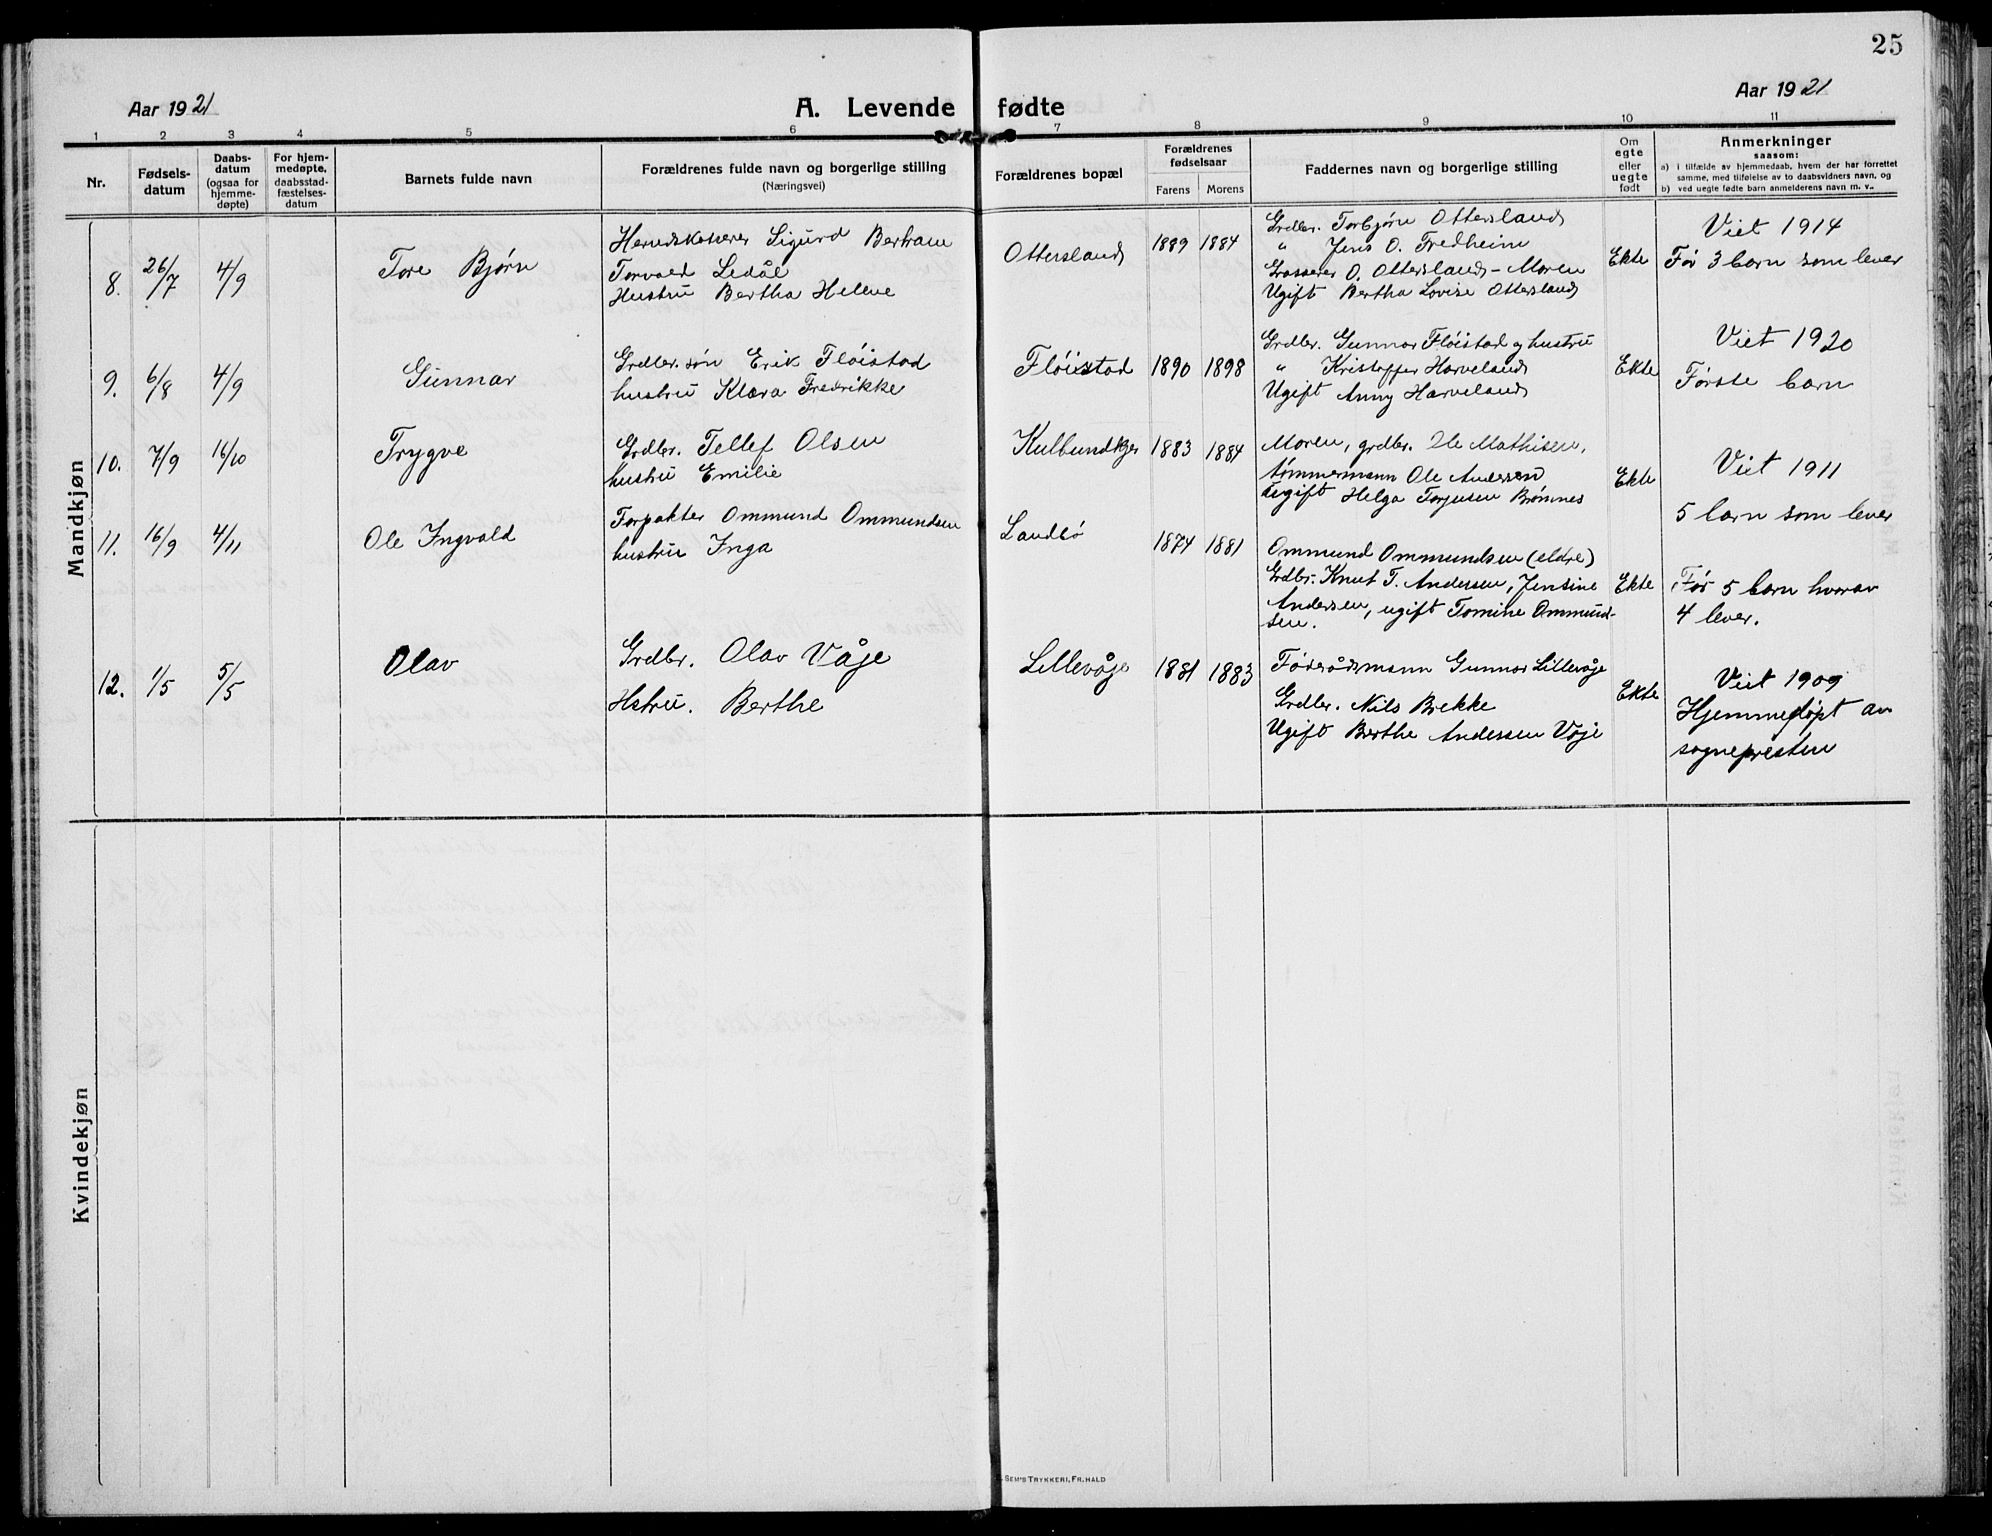 25
Aar 1921
A. Levende fødte
Aar 1921
1 2 3 4 5 6 7 8 9 10 11
Nr.
Fødsels-
datum
Daabs-
datum
(ogsaa for
hjemme-
døpte)
For hjem-
medøpte,
daabsstad-
fæstelses-
datum
Barnets fulde navn
Forældrenes fulde navn og borgerlige stilling
(Næringsvei)
Forældrenes bopæl
Forældrenes
fødselsaar
Farens Morens
Faddernes navn og borgerlige stilling
Om
egte
eller
uegte
født
Anmerkninger
saasom:
a) i tilfælde av hjemmedaab, hvem der har forrettet
samme, med tilføielse av to daabsvidners navn, og
b) ved uegte fødte barn anmelderens navn m. v..
Mandkjøn
8. 26/7 4/9
Tore Bjørn
Sigurd Bertram
Torvald Ledål
Hustru Bertha Helene
Ottersland
1889 1884
Grdbr. Torbjørn Ottersland
" Jens O. Fredheim
Grosserer O. Ottersland - Moren
Ugift Bertha Lovise Ottersland
Ekte
Viet 1914
Før 3 barn som lever
9. 6/8 4/9
Gunnar
Grdbr. søn Erik Fløistad
hustru Klara Fredrikke
Fløistad
1890 1898
Grdbr. Gunnar Fløistad og hustru
" Kristoffer Harveland
Ugift Anny Harveland
Ekte
Viet 1920
Første barn
10. 7/9 16/10
Trygve
Grdbr. Tellef Olsen
hustru Emilie
Kulbundkjer
1883 1884
Moren, grdbr. Ole Mathisen,
tømmermann Ole Andersen
Ugift Helga Torjusen Brømnes
Ekte
Viet 1911
5 barn som lever
11. 16/9 4/11
Ole Ingvald
Forpakter Ommund Ommundsen
hustru Inga
Landbø
1874 1881
Ommund Ommundsen (eldre)
Grdbr. Knut T. Andersen, Jensine
Andersen, ugift Tomine Ommund-
sen.
Ekte
Før 5 barn hvorav
4 lever.
12. 1/5 5/5
Olav
Grdbr. Olav Våje
Hstru. Berthe
Lillevåje
1881 1883
Føderådsmann Gunnar Lillevåje
Grdbr. Nils Brekke
Ugift Berthe Andersen Våje
Ekte
Viet 1909
Hjemmedøpt av
sognepresten
Kvindekjøn
SEM'S TRYKKERI, FR.HALD